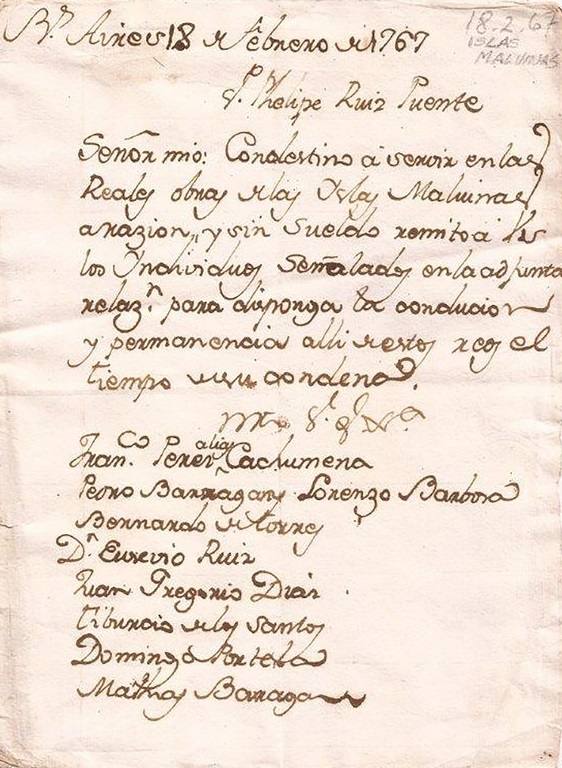 Bs. Aires 18 de febrero de 1767
18.2.67
ISLAS
MALVINAS
Phelipe Ruiz Puente
Señor mio: Con destino á servir en las
Reales obras de las Yslas Malvinas
a razion, y sin sueldo remito á
los Yndividuos Señalados en la adjunta
relazn. para disponga la conducion
y permanencia alli de estos reos el
tiempo de su condena.
Franco. Perez alias Cachumena
Pedro Barragan, Lorenzo Barbosa
Bernardo de torres
Dn. Eusevio Ruiz
Juan Gregorio Diaz
tiburcio de los santos
Domingo Portela
Mathias Barragan